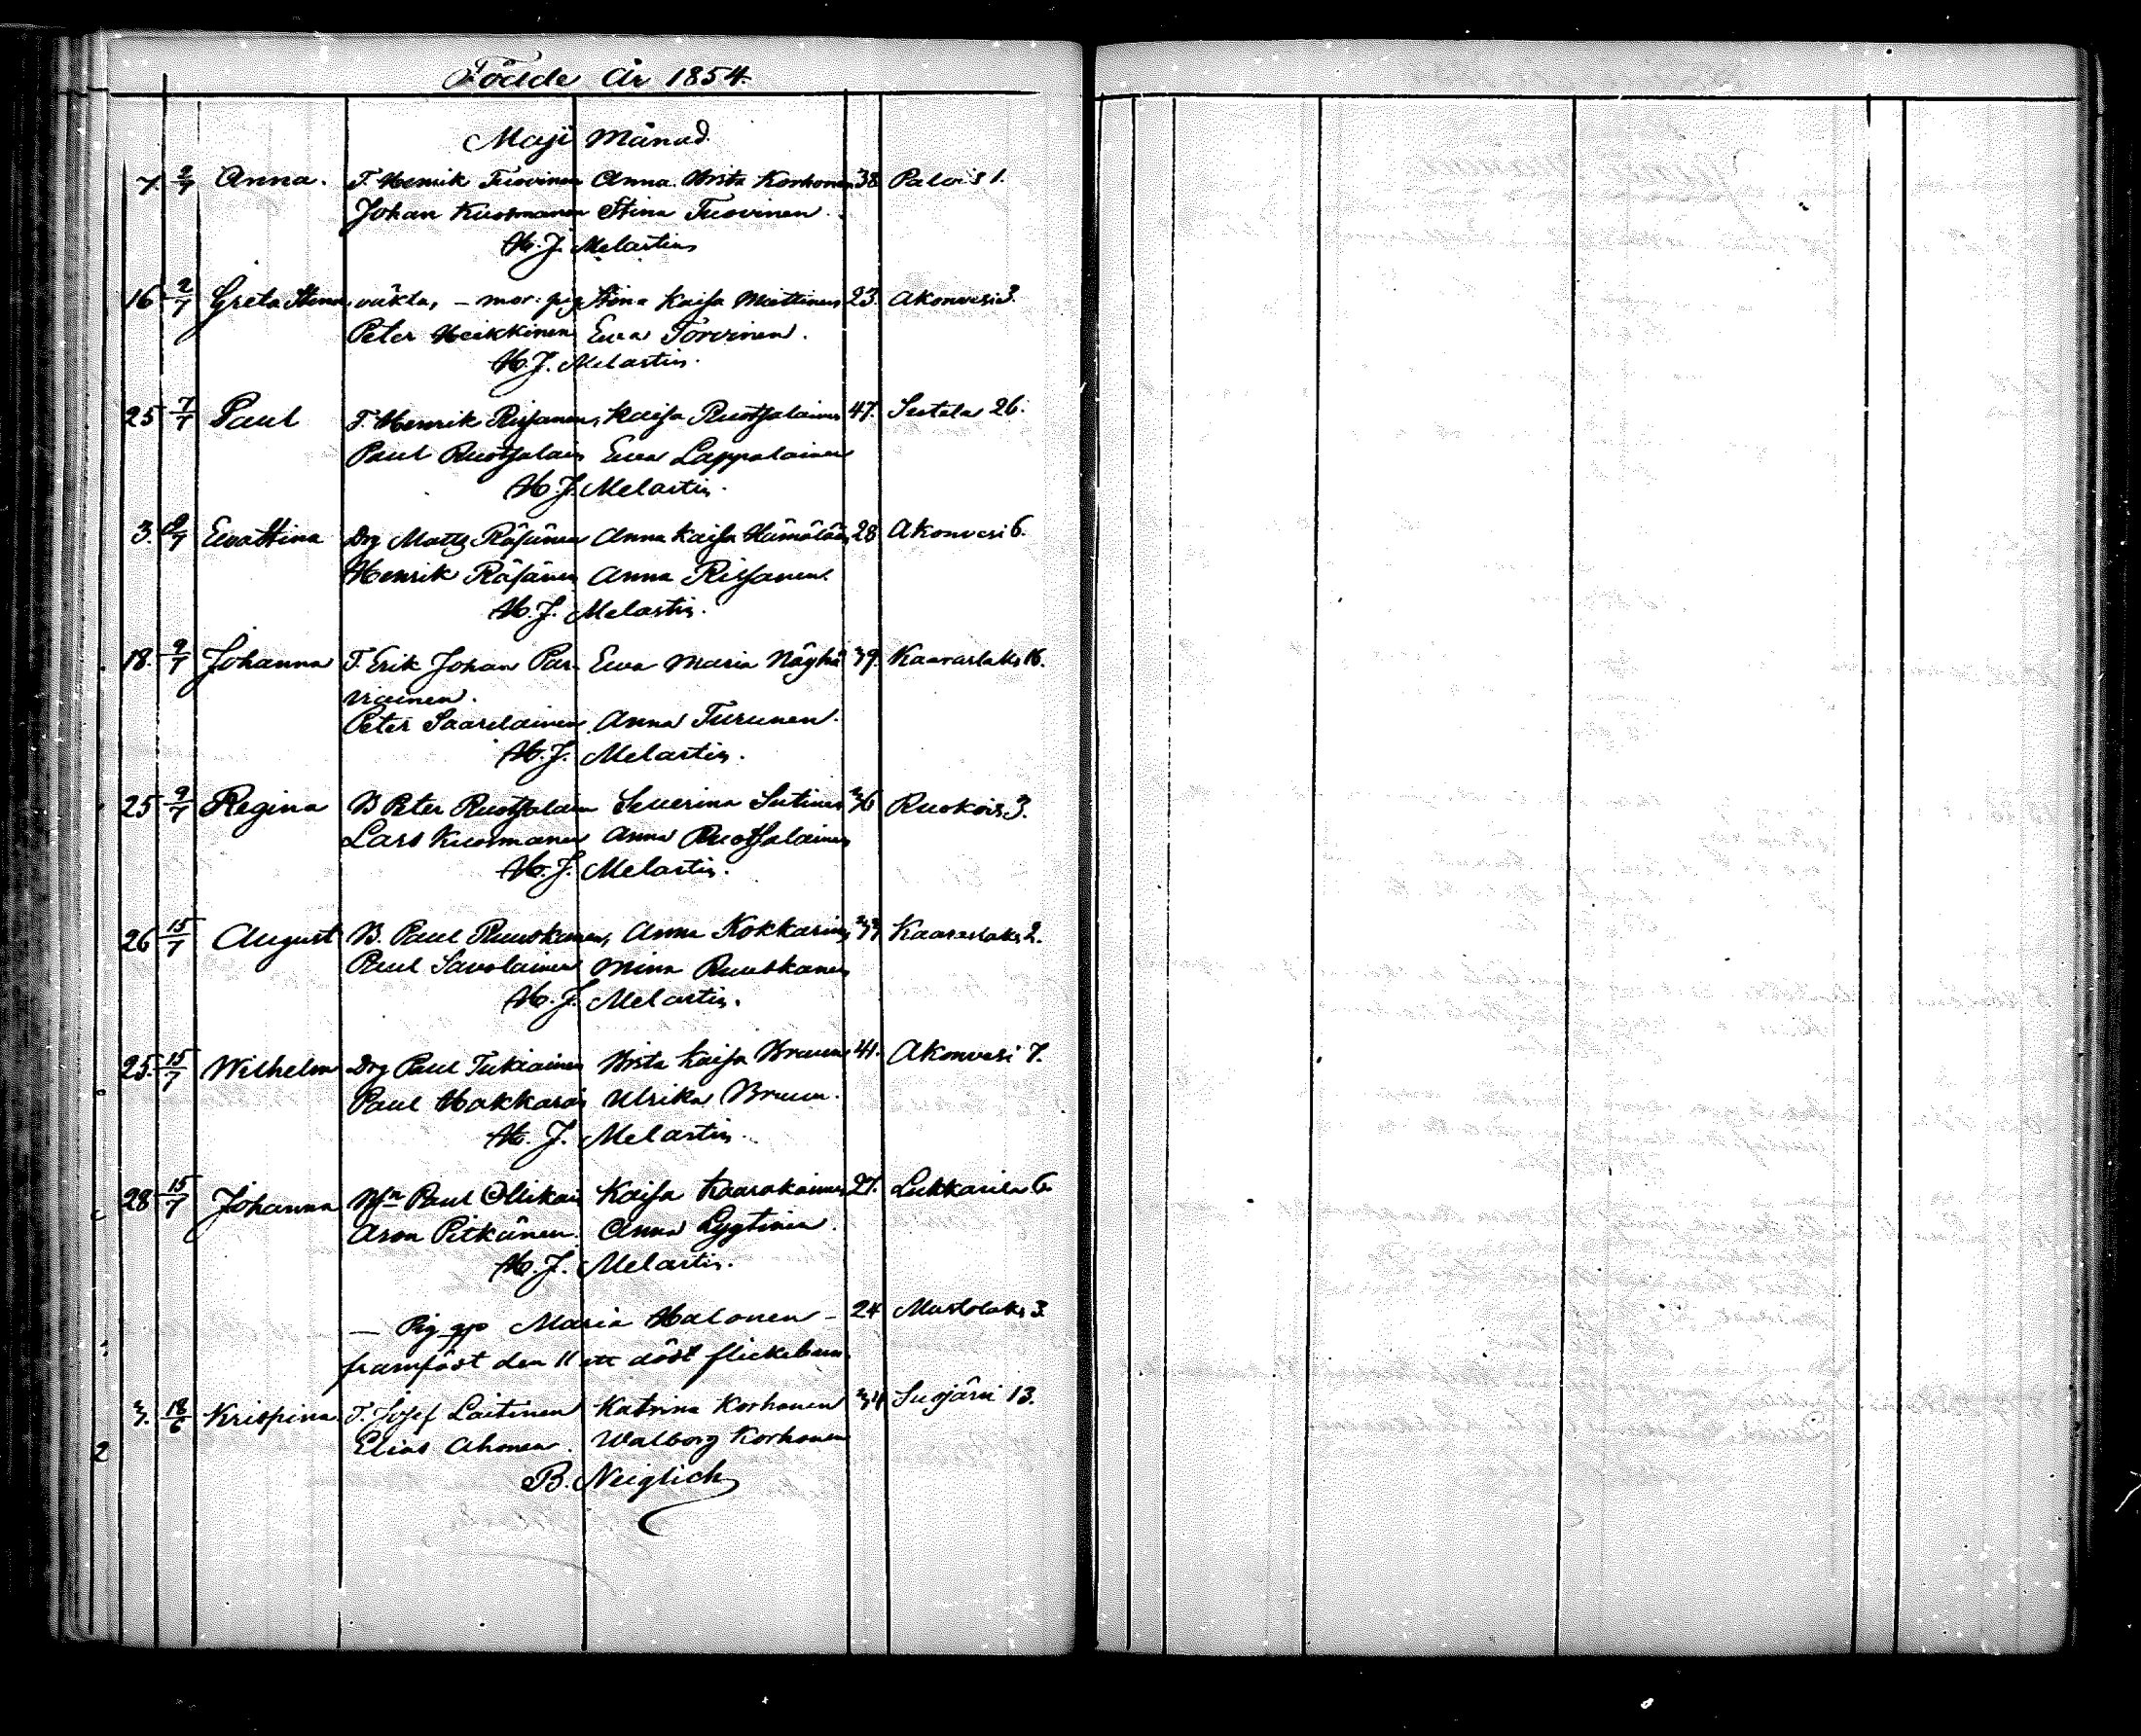 Födde År 1854.
Maji Månad.
7. 2/7 Anna. T. Henrik Tuovinen Anna Brita Korhonen 38 Palois 1.
Johan Kuosmanen Stina Tuovinen.
H. J. Melartin
16 2/7 Greta Stina, oäkta, – mor: pig Stina Kaisa Miettinen 23. Akonvesi 3.
Peter Heikkinen Eva Torvinen.
H. J. Melartin.
25 7/7 Paul T. Henrik Rissanen, Kaisa Ruotsalainen 47. Sutela 26.
Paul Ruotsalain Eva Lappalainen
H. J. Melartin.
3. 9/7 Eva Stina Drg Matts Räsänen Anna Kaisa Hämäläin 28 Akonvesi 6.
Henrik Räsänen Anna Rissanen.
H. J. Melartin.
18. 9/7 Johanna T. Erik Johan Par- Eva Maria Näyhä 39. Kaavaslaks 16.
viainen.
Peter Saarelainen Anna Turunen.
H. J. Melartin.
25 9/7 Regina B Peter Ruotsalain Severina Sutinen 36 Ruokois. 3.
Lars Kuosmanen Anna Ruotsalainen
H. J. Melartin.
26 15/7 August B. Paul Ruuskanen, Anna Kokkarin 33 Kaavaslaks 2.
Paul Savolainen Mina Ruuskanen
H. J. Melartin.
25. 15/7 Wilhelm Drg Paul Tukiainen Brita Kaisa Bruun 41. Akonvesi 7.
Paul Hakkarai Ulrika Bruun.
H. J. Melartin.
28 15/7 Johanna Paul Ollikai Kaisa Kaarakainen 27. Lukkarila 6.
Aron Pitkänen. Anna Lyytinen.
H. J. Melartin.
— Pig Maria Halonen – 24 Mustolaks 3.
framfödt den 11 ett dödt flickebarn.
3. 18/6 Krispina T. Josef Laitinen Katrina Korhonen 34 Susjärvi 13.
2 Elias Ahonen. Walborg Korhonen
B. Neiglick